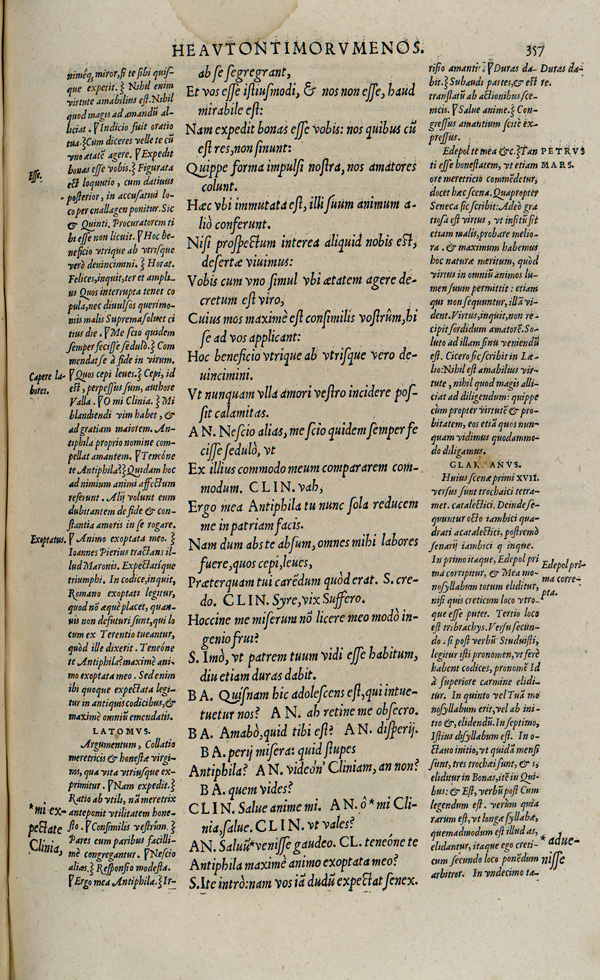 HEAVTONTIMORVMENOS.
357
niméq, miror, si te sibi quis-
que expetit. ξ Nihil enim
virtute amabilius est. Nihil
quod magis ad amandũ al-
liciat. ¶ Indicio suit oratio
tua. ξ Cum diceres velle te cũ
vno ætatẽ agere. ¶ Expedit
bonas esse vobis. ξ Figurata
est loquutio, cum datiuus
posterior, in accusatiui lo-
co per enallagen ponitur. Sic
& Quinti. Procuratorem ti
bi esse non licuit. ¶ Hoc be-
neficio vtrique ab vtrisque
verò deuincimini. ξ Horat.
Felices, inquit, ter et ampli-
us Quos interrupta tenet co
pula, nec diuulsos querimo-
niis malis Suprema soluet ci
tius die. ¶ Me scio quidem
semper fecisse sedulò. ξ Com
mendat se à fide in virum.
¶ Quos cepi leues. ξ Cepi, id
est, perpessus sum, authore
Valla. ¶ O mi Clinia. ξ Mi
blandiendi vim habet, &
ad gratiam maiorem. An-
tiphila proprio nomine com-
pellat amantem. ¶ Teneóne
te Antiphila? ξ Quidam hoc
ad nimium animi affectum
referunt. Alij volunt eum
dubitantem de fide & con-
stantia amoris in se rogare.
¶ Animo exoptata meo. ξ
Ioannes Pierius tractans il-
lud Maronis. Expectatique
triumphi. In codice, inquit,
Romano exoptati legitur,
quod nõ æquè placet, quan-
uis non defuturi sunt, qui lo
cum ex Terentio tueantur,
quòd ille dixerit. Teneone
te Antiphila? maximè ani-
mo exoptata meo. Sed enim
ibi quoque expectata legi-
tur in antiquis codicibus, &
maximè omniũ emendatis.
LATOMVS.
Argumentum, Collatio
meretricis & honestæ virgi-
nis, qua vita vtriusque ex-
primitur. ¶ Nam expedit. ξ
Ratio ab vtili, nã meretrix
anteponit vtilitatem hone-
sto. ¶ Consimilis vestrûm. ξ
Pares cum paribus facilli-
mè congregantur. ¶ Nescio
alias. ξ Responsio modesta.
¶ Ergo mea Antiphila. ξ Ir-
Esse.
Capere la-
bores.
Exoptatus.
*mi ex-
pectate
Clinia,
ab se segregrant,
Et vos esse istiusmodi, & nos non esse, haud
mirabile est:
Nam expedit bonas esse vobis: nos quibus cũ
est res, non sinunt:
Quippe forma impulsi nostra, nos amatores
colunt.
Hæc vbi immutata est, illi suum animum a-
liò conferunt.
Nisi prospectum interea aliquid nobis est,
desertæ viuimus:
Vobis cum vno simul vbi ætatem agere de-
cretum est viro,
Cuius mos maximè est consimilis vostrûm, hi
se ad vos applicant:
Hoc beneficio vtrique ab vtrisque vero de-
uincimini.
Vt nunquam vlla amori vestro incidere pos-
sit calamitas.
AN. Nescio alias, me scio quidem semper fe
cisse sedulò, vt
Ex illius commodo meum compararem com-
modum. CLIN. vah,
Ergo mea Antiphila tu nunc sola reducem
me in patriam facis.
Nam dum abs te absum, omnes mihi labores
fuere, quos cepi, leues,
Præterquam tui carẽdum quòd erat. S. cre-
do. CLIN. Syre, vix Suffero.
Hoccine me miserum nõ licere meo modo in-
genio frui?
S. Imò, vt patrem tuum vidi esse habitum,
diu etiam duras dabit.
BA. Quisnam hic adolescens est, qui intue-
tuetur nos? AN. ah retine me obsecro.
BA. Amabò, quid tibi est? AN. disperij.
BA. perij misera: quid stupes
Antiphila? AN. videón' Cliniam, an non?
BA. quem vides?
CLIN. Salue anime mi. AN. ô *mi Cli-
nia, salue. CLIN. vt vales?
AN. Saluũ *venisse gaudeo. CL. teneóne te
Antiphila maximè animo exoptata meo?
S. Ite intrò: nam vos iã dudũ expectat senex.
risio amantis. ¶ Duras da-
bit. ξ Subaudi partes, & est
translatũ ab actionibus sce-
nicis. ¶ Salue anime. ξ Con-
gressus amantium scitè ex-
pressus.
Edepol te mea &c. ξ Tan
ti esse honestatem, vt etiam
ore meretricio commẽdetur,
docet hæc scena. Quapropter
Seneca sic scribit: Adeò gra
tiosa est virtus, vt insitũ sit
etiam malis, probare melio-
ra. & maximum habemus
hoc naturæ meritum, quòd
virtus in omniũ animos lu-
men suum permittit: etiam
qui non sequuntur, illã vi-
dent. Virtus, inquit, non re-
cipit sordidum amatorẽ. So-
luto ad illam sinu veniẽdũ
est. Cicero sic scribit in Læ-
lio: Nihil est amabilius vir-
tute, nihil quod magis alli-
ciat ad diligendum: quippe
cùm propter virtutẽ & pro-
bitatem, eos etiã quos nun-
quam vidimus quodammo-
do diligamus.
GLAREANVS.
Huius scenæ primi XVII.
versus sunt trochaici tetra-
met. catalectici. Deinde se-
quuntur octo iambici qua-
drati acatalectici, postremò
senarij iambici q inque.
In primo itaque, Edepol pri
ma corripitur, & Mea mo-
nosyllabum totum eliditur,
nisi quis creticum loco vltro-
que esse putet. Tertio loco
est tribrachys. Versu secun-
do. si post verbũ Studuisti,
legitur isti pronomen, vt ferè
habent codices, pronomẽ Id
à superiore carmine elidi-
tur. In quinto vel Tuã mo
nosyllabum erit, vel ab ini-
tio &, elidendũ. In septimo,
Istius disyllabum est. In o-
ctauo initio, vt quidã mensi
sunt, tres trochæi sunt, & s,
eliditur in Bonas, itẽ in Qui-
bus: & Est, verbũ post Cum
legendum est. verùm quia
rarum est, vt longæ syllabæ,
quemadmodum est illud as,
elidantur, itaque ego creti-
cum secundo loco ponẽdum
arbitror. In vndecimo ta-
Duras da-
re.
PETRVS
MARS.
Edepol pri-
ma corre-
pta.
*adue-
nisse